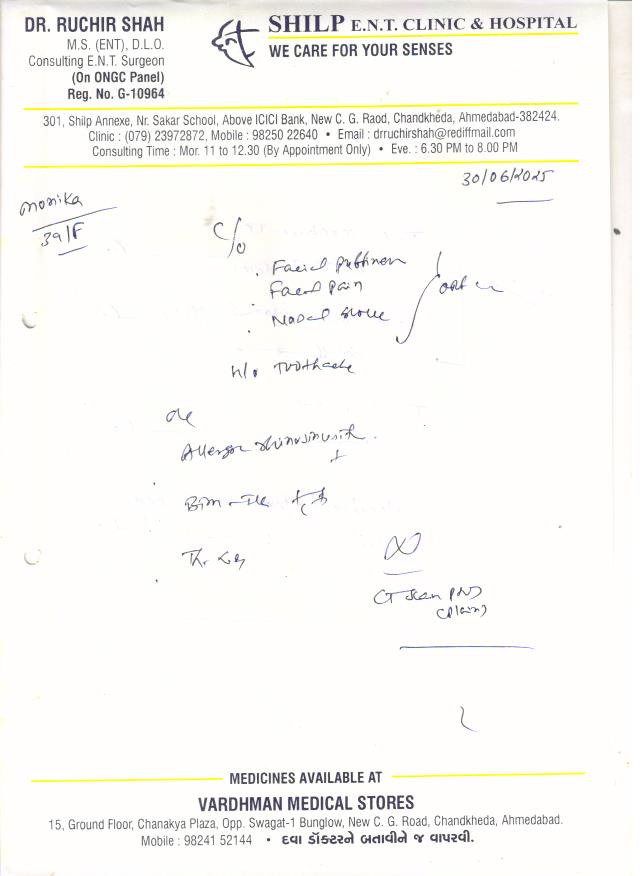 DR. RUCHIR SHAH
M.S. (ENT), D.L.O.
Consulting E.N.T. Surgeon
(On ONGC Panel)
Reg. No. G-10964
SHILP E.N.T. CLINIC & HOSPITAL
WE CARE FOR YOUR SENSES
301, Shilp Annexe, Nr. Sakar School, Above ICICI Bank, New C. G. Raod, Chandkheda, Ahmedabad-382424.
Clinic : (079) 23972872, Mobile : 98250 22640 • Email : drruchirshah@rediffmail.com
Consulting Time : Mor. 11 to 12.30 (By Appointment Only) • Eve. : 6.30 PM to 8.00 PM
30/06/2025
Monika
39/F
C/o
Facial
Facial Pain
Nasal
H/o Toothache
CT Scan PNS
(Plain)
MEDICINES AVAILABLE AT
VARDHMAN MEDICAL STORES
15, Ground Floor, Chanakya Plaza, Opp. Swagat-1 Bunglow, New C. G. Road, Chandkheda, Ahmedabad.
Mobile : 98241 52144 • દવા ડૉક્ટરને બતાવીને જ વાપરવી.